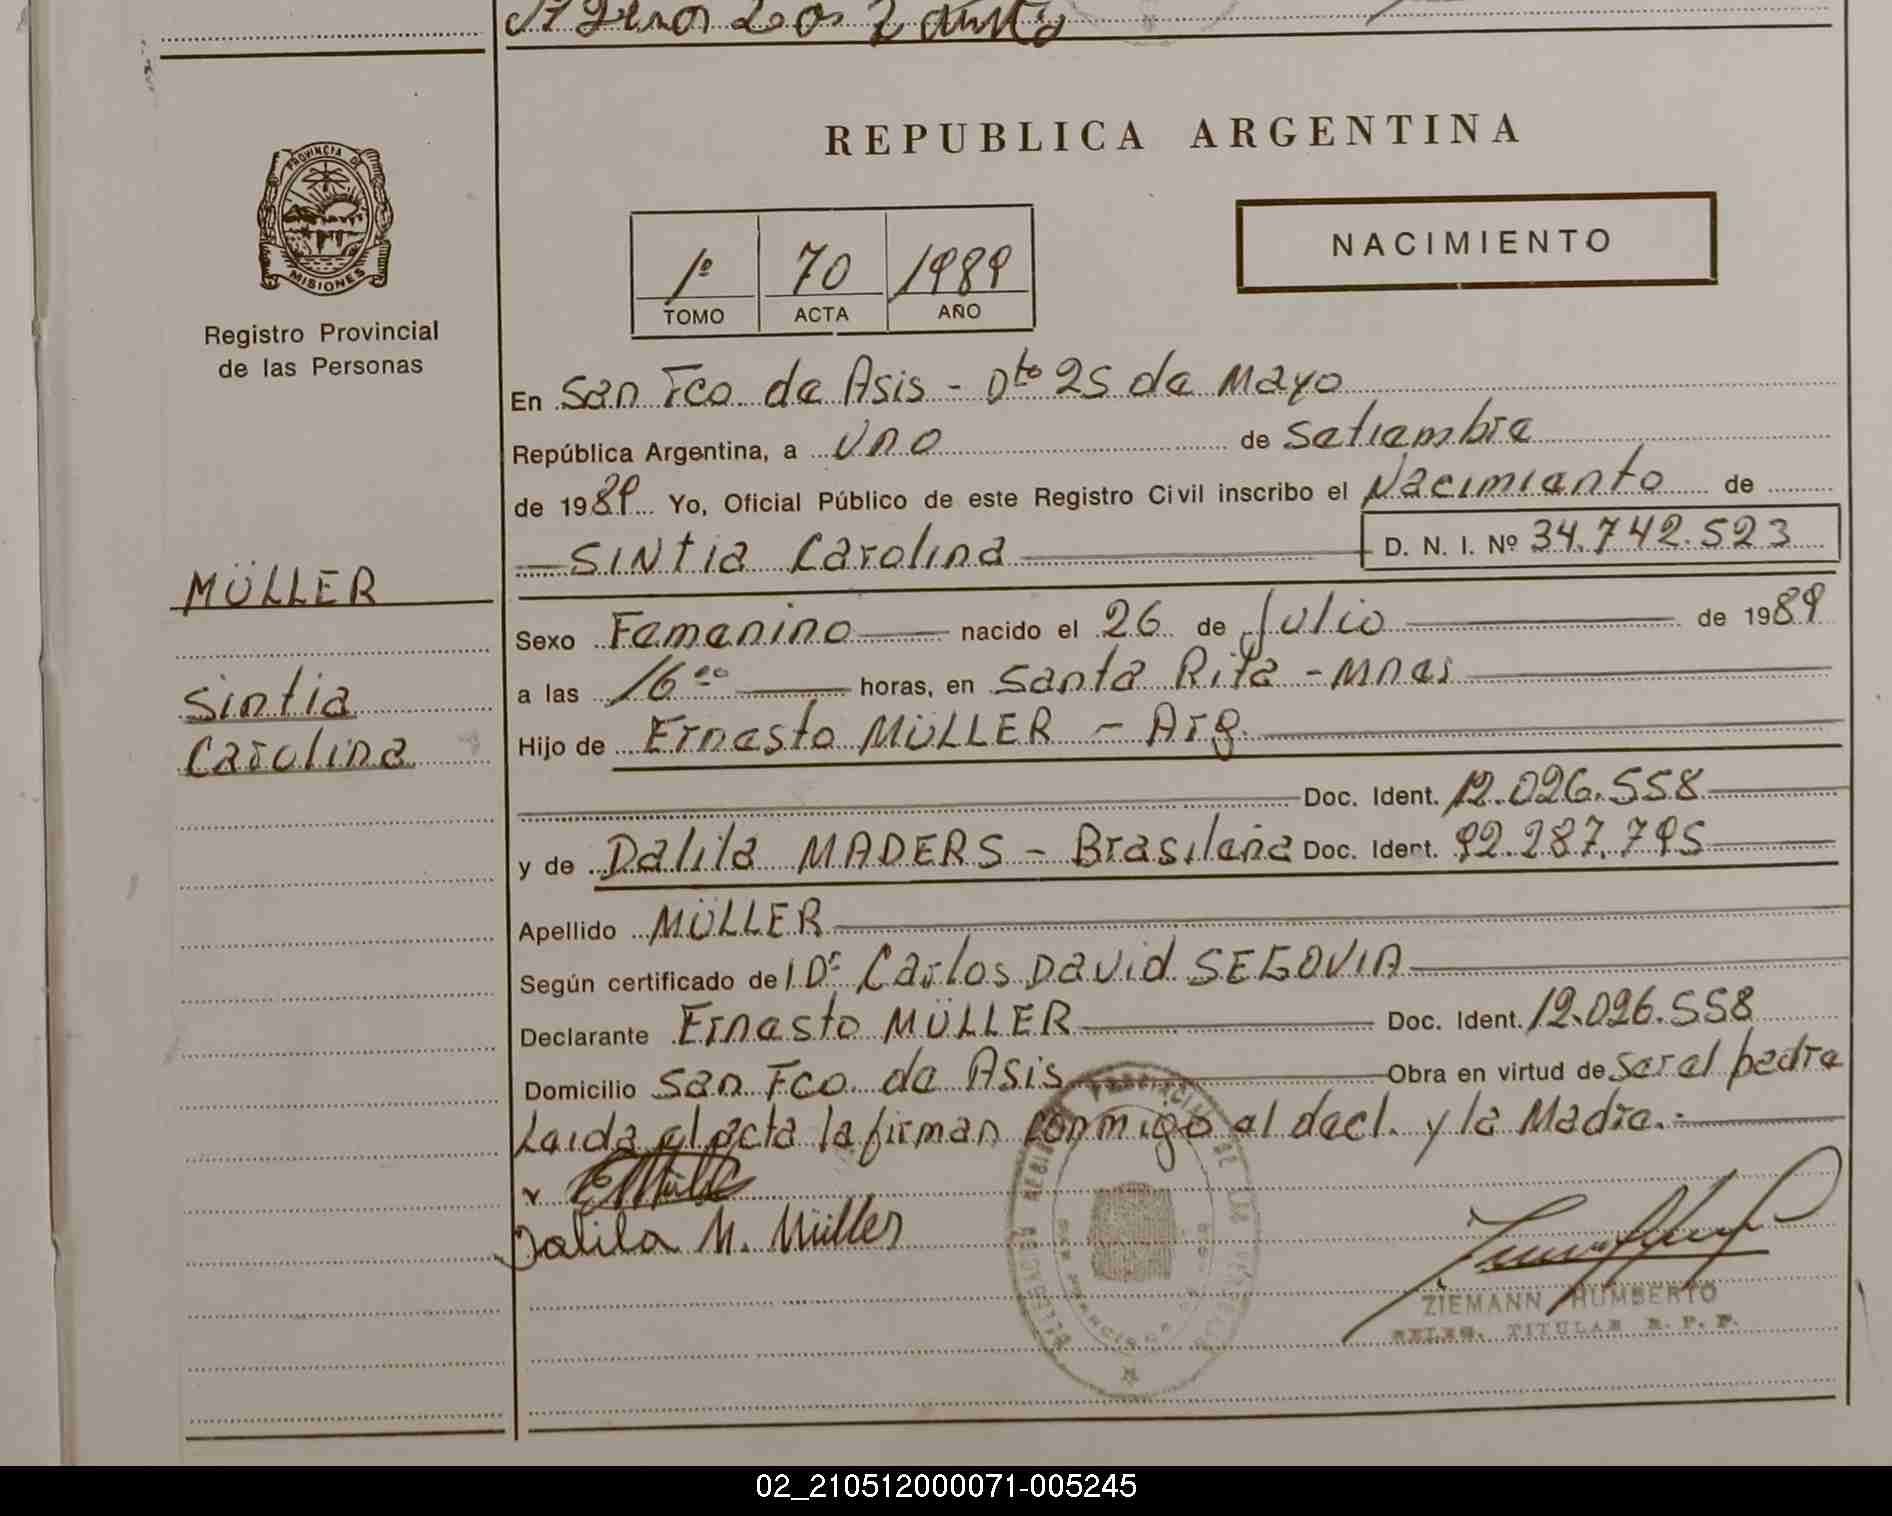 REPUBLICA ARGENTINA
PROVINCIA DE
MISIONES
Registro Provincial
de las Personas
1º 70 1989
TOMO ACTA AÑO
NACIMIENTO
En San Fco de Asis - Dto 25 de Mayo
República Argentina, a uno de Setiembre
de 1989 Yo, Oficial Público de este Registro Civil inscribo el Nacimiento de
SINtia Carolina D. N. I. Nº 34.742.523
MÜLLER
Sintia
Carolina
Sexo Femenino nacido el 26 de Julio de 1989
a las 16 00 horas, en Santa Rita - Mnes
Hijo de Ernesto MÜLLER - Arg.
Doc. Ident. 12.026.558
y de Dalila MADERS - Brasileña Doc. Ident. 92.287.795
Apellido MÜLLER
Según certificado de Dr Carlos David SEGOVIA
Declarante Ernesto MÜLLER Doc. Ident. 12.026.558
Domicilio San Fco. de Asis Obra en virtud de ser el padre
Leida el acta la firman conmigo el decl. y la Madre.-
Dalila M. Müller
ZIEMANN HUMBERTO
DELEG. TITULAR R. P. P.
02_210512000071-005245